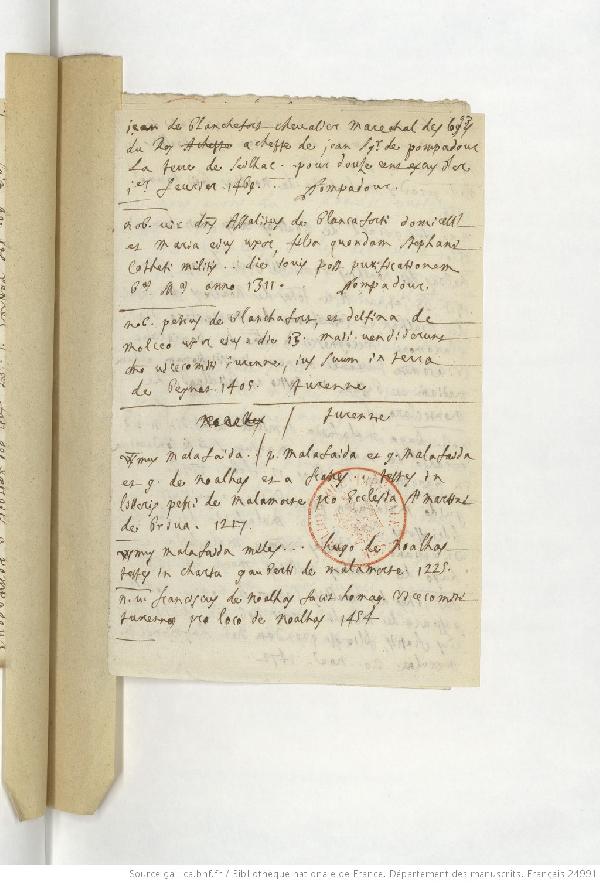 jean de blanchefort chevalier marechal des logis
du Roy achepte de jean sgr de pompadour
La terre de Seilhac. pour douze cent escus d'or
1er feurier 1469. Pompadour.
nob. vir dns Assalitus de blancaforti domicell
et Maria eius uxor, filia quondam Stephani
militis.. die iovis post purificationem
anno 1311. Pompadour.
nob. petrus de blanchafort, et delfina de
molceo uxor eius die 13 maii vendiderunt
dno vicecomiti turenne, ius suum in terra
de 1405. turenne
noalhes / turenne
malafaida. / p. malafaida et g. malafaida
et g. de noalhas et a testes in
litteris petri de malamorte pro Ecclesia St martini
de briua. 1217.
malafaida miles... hugo de noalhas
testes in charta gauberti de malamorte 1225.
n. v. franciscus de noalhas facit homag. vicecomiti
turenne pro loco de noalhas 1454
Source gallica.bnf.fr / Bibliothèque nationale de France. Département des manuscrits. Français 24991